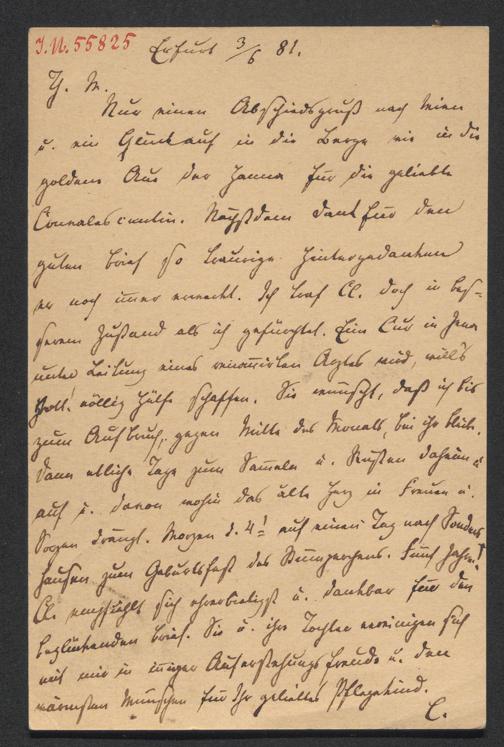 I.N. 55825
Erfurt 3/6 81.
Th. M.
Nur einen Abschiedsgruß nach Wien
u. ein Glückauf in die Berge wie in die
goldene Aue der Hanna für die geliebte
Convalescentin. Nächstdem Dank für den
guten Brief so traurige Hintergedanken
er noch immer erweckt. Ich traf El. doch in bes-
serem Zustand als ich gefürchtet. Eine Cur in Jena
unter Leitung eines renomirten Arztes wird, will's
Gott! völlig Hülfe schaffen. Sie wünscht, daß ich bis
zum Aufbruch, gegen Mitte des Monats, bei ihr bleibe.
Dann etliche Tage zum Sammeln u. Rüsten daheim u.
auf u. davon wohin das alte Herz in Freuen u.
Sorgen drängt. Morgen d. 4t auf einen Tag nach Sonders
hausen zum Geburtsfest des Stammherrn. Fünf Jahr!
El. empfiehlt sich ehrerbietigst u. dankbar für den
beglückenden Brief. Sie u. ihre Tochter vereinigen sich
mit mir in inniger Auferstehungsfreude u. den
wärmsten Wünschen für Ihr geliebtes Pflegekind.
L.